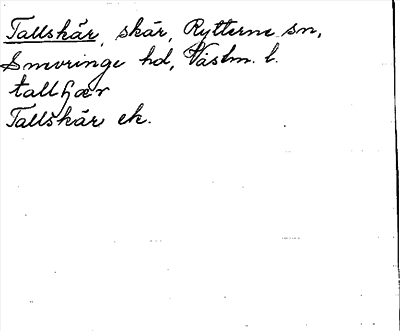 Tallskär, skär, Rytterne sn,
Snevringe hd, Västm. l.
tallʃær
Tallskär ek.